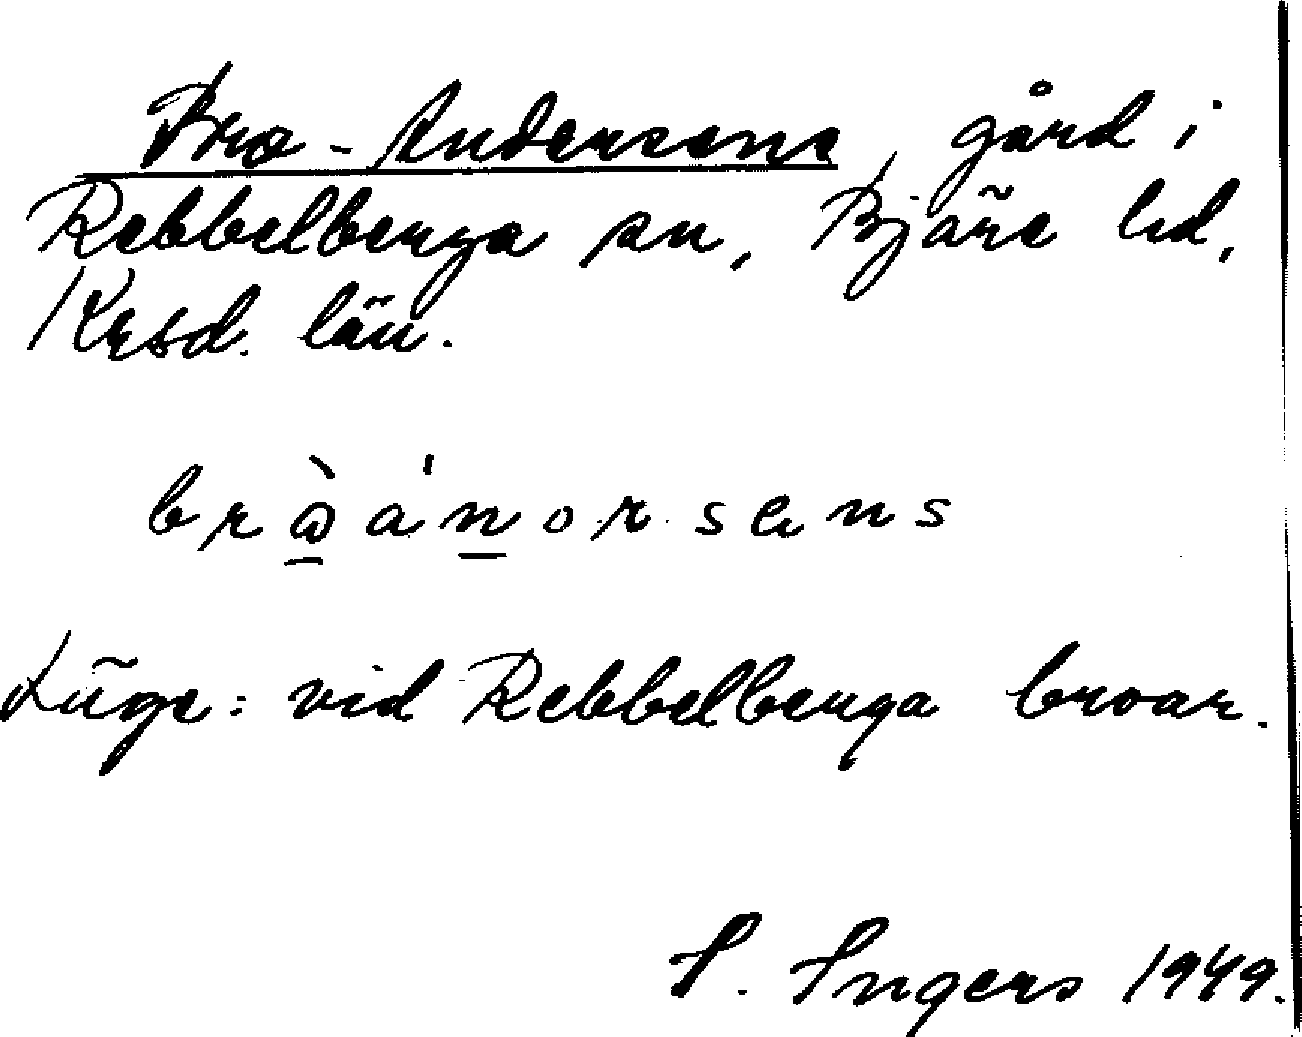 Bro-Andersens, gård i
Rebbelberga sn, Bjäre hd,
Krsd. län.
bròánorsens
Läge: vid Rebbelberga broar.
I. Ingers 1949.